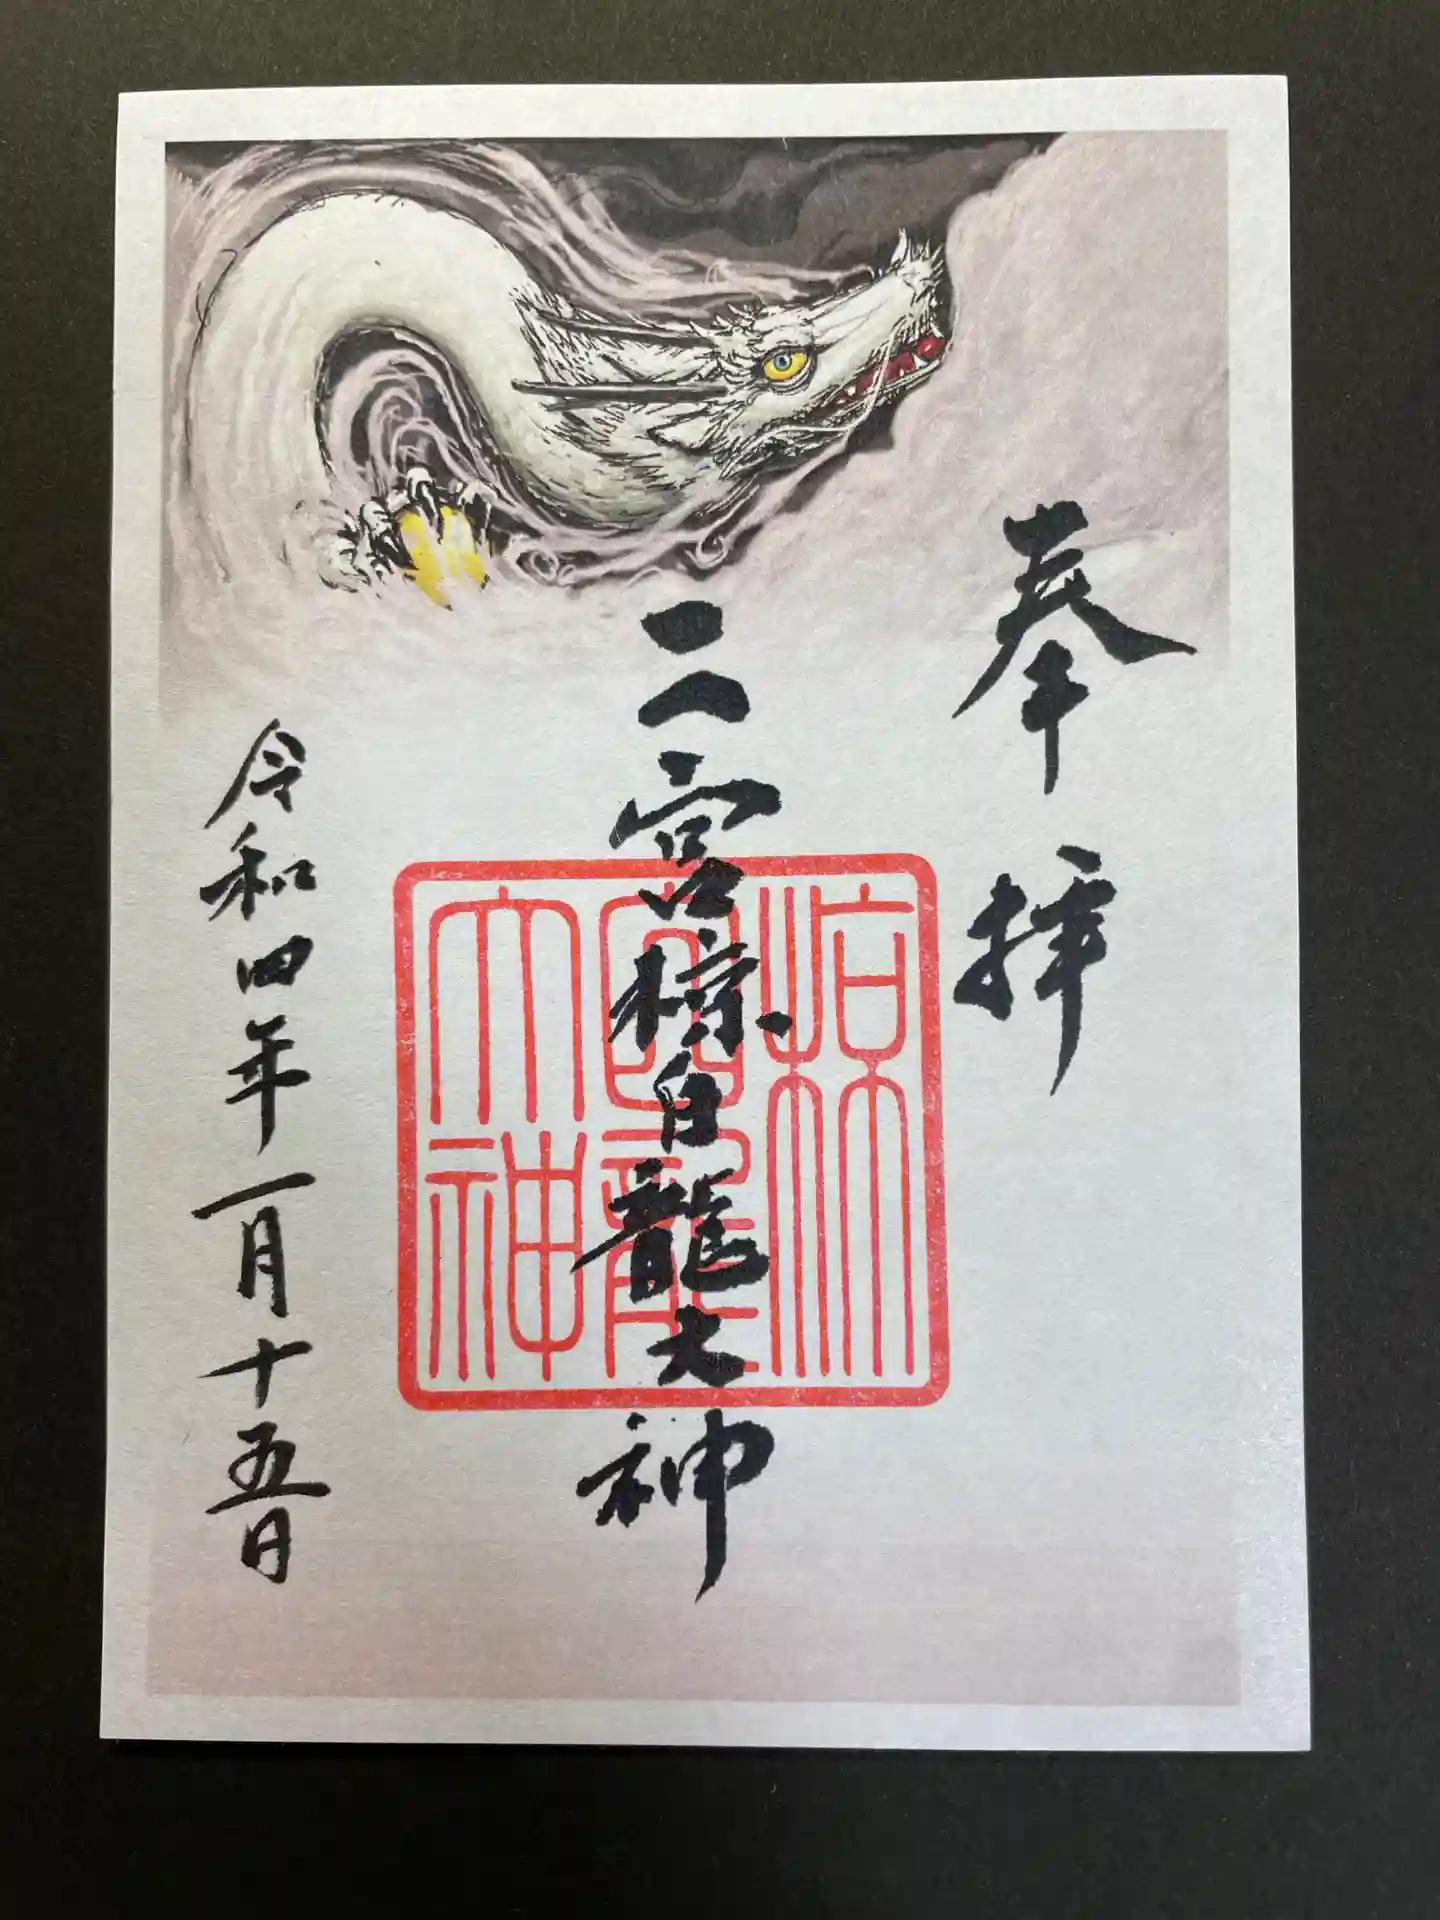 奉拝
二宮椋白龍大神
令和四年一月十五日
大神